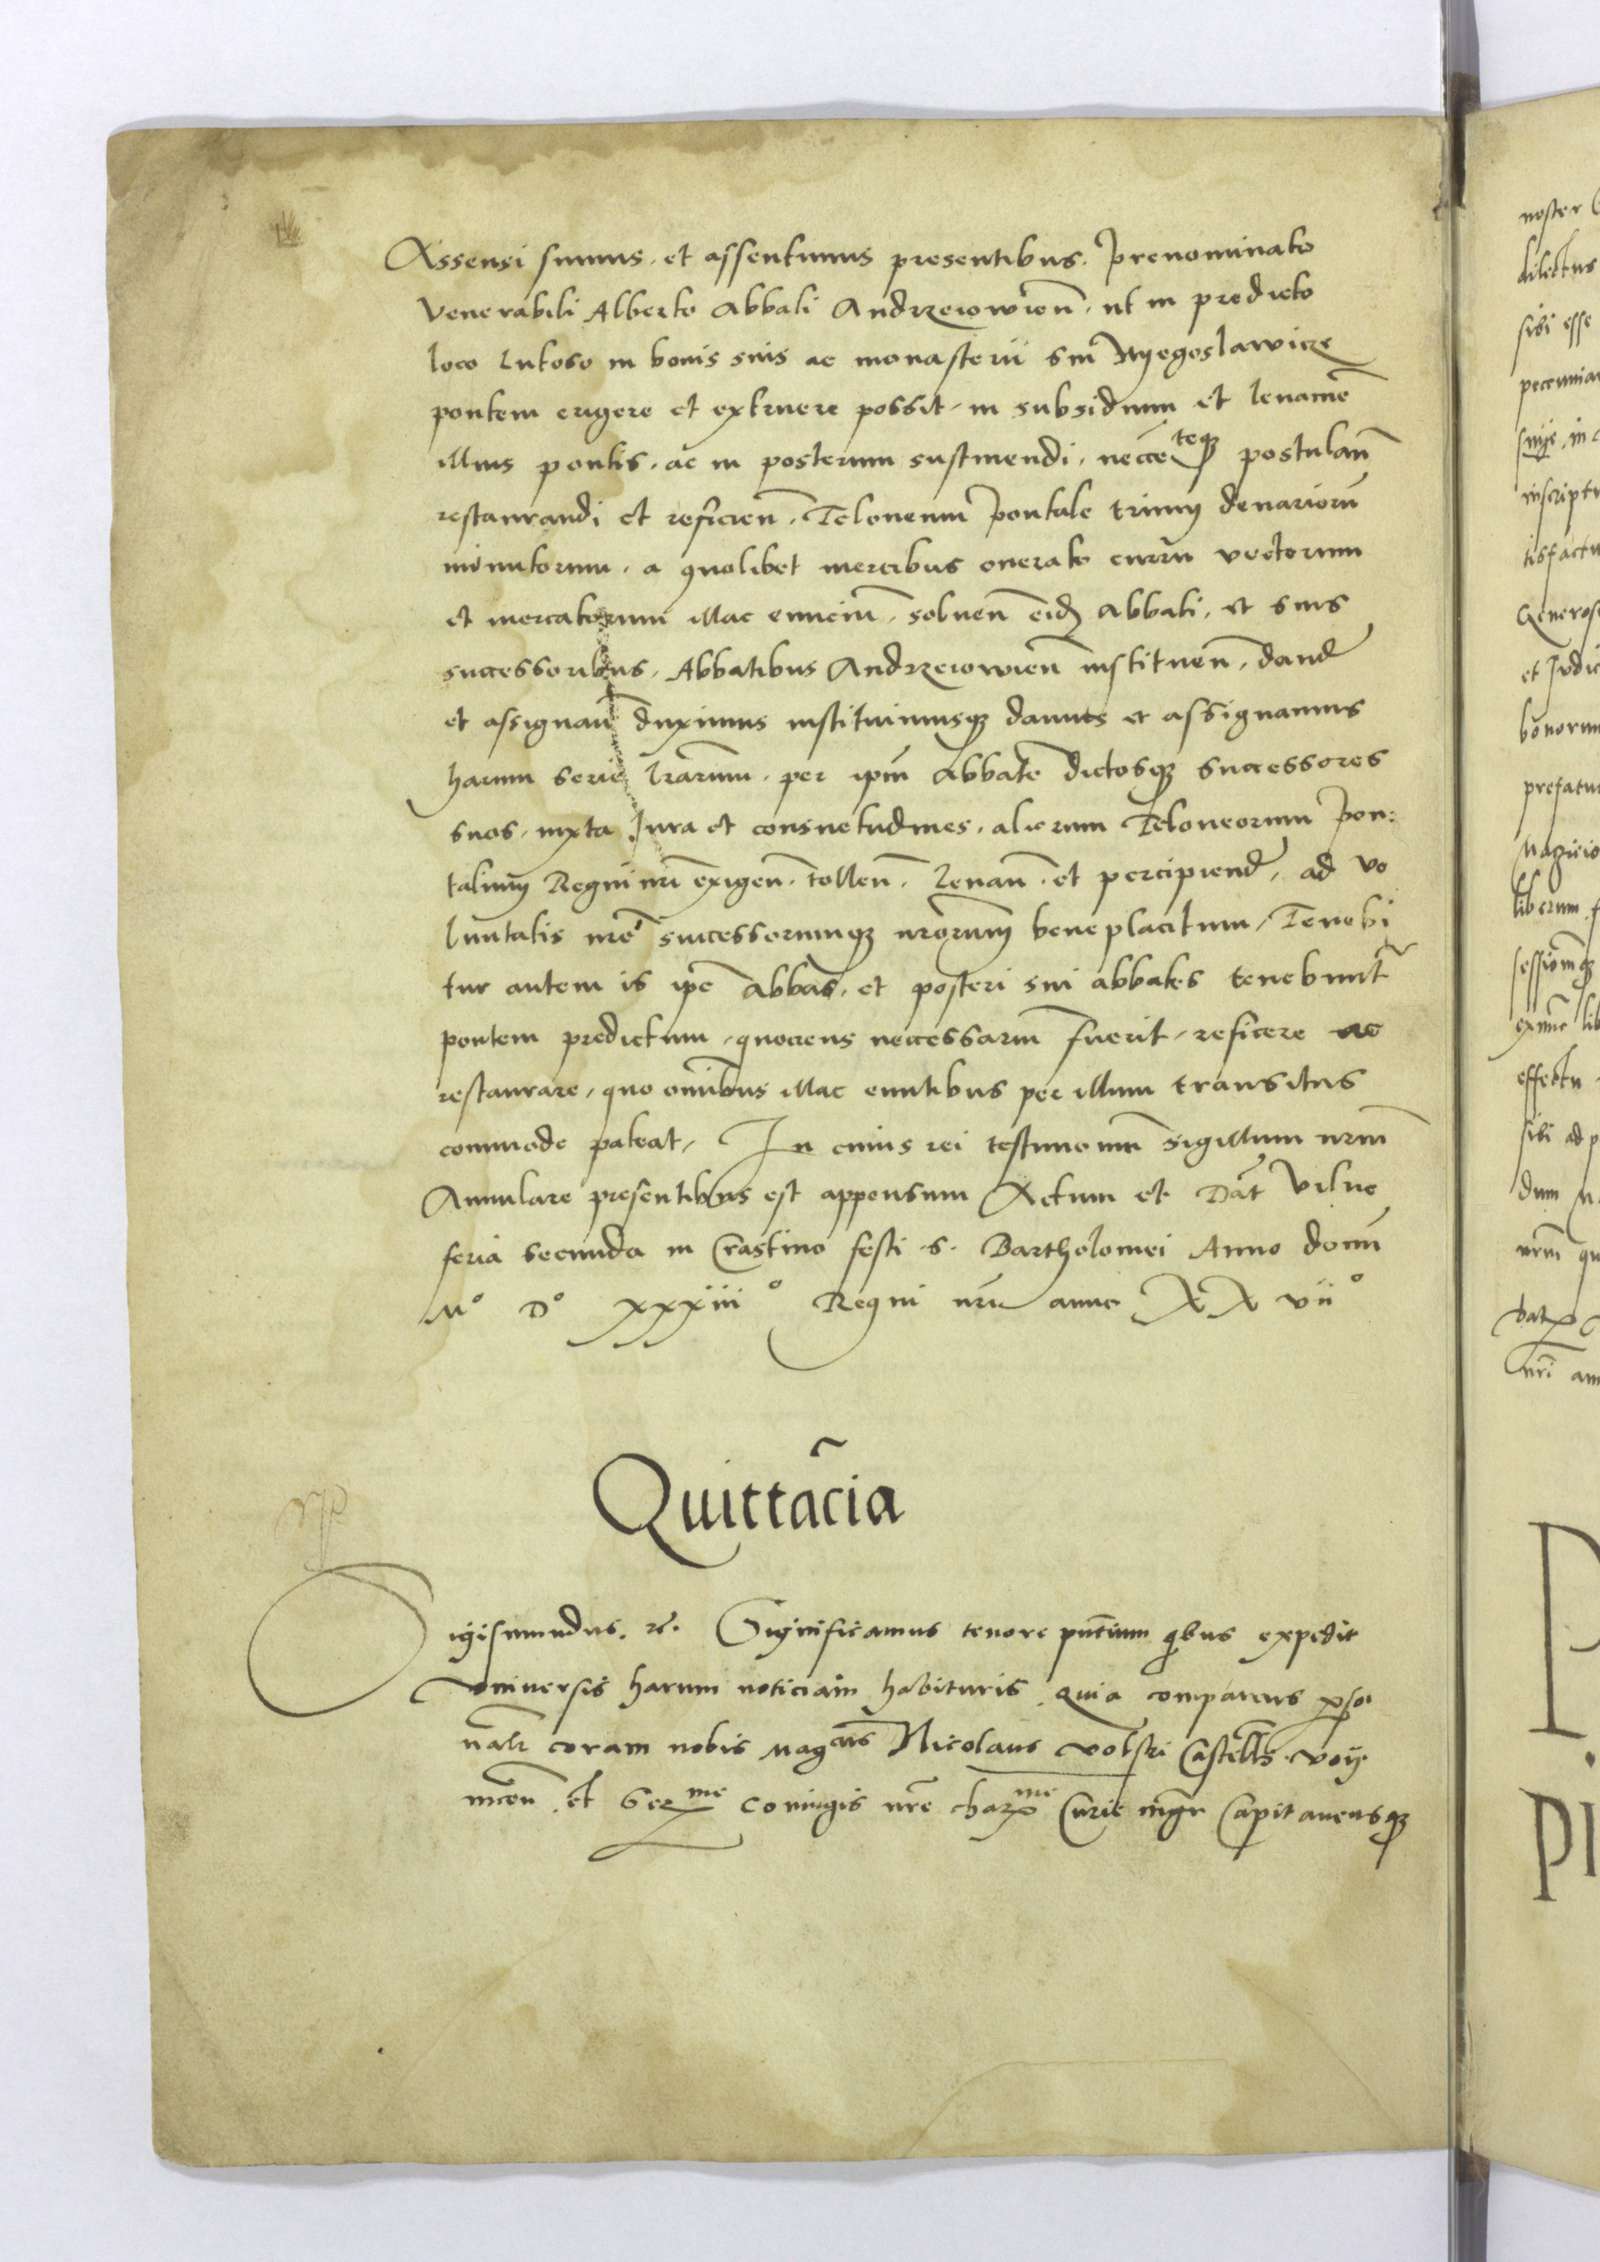 Assensi sumus, et assentimus presentibus. Prenominato
Venerabili Alberto Abbati Andrzeiowien̄. ut in predicto
loco lutoso in bonis suis ac monasterii sui Nyegoslawicze
pontem erigere et extruere possit, in subsidium et levamē
illius pontis, ac in posterum sustinendi, neccēteq̃ postulan̄
restaurandi et reficien̄. Teloneum Pontale trium denariorū
minutorum, a quolibet mercibus onerato curru vectorum
et mercatorum illac euncium, solven̄ eidē Abbati, et suis
successoribus, Abbatibus Andrzeiowien̄ instituen̄, dand̄
et assignan̄ duximus instituimusq̃ damus et assignamus
harum serie lrārum, per ipm̄ Abbatē dictosq̃ successores
suos, iuxta Jura et consuetudines, aliorum Teloneorum Pon:
talium Regni nrī exigen̄. tollen̄. Levan̄. et percipiend̄, ad vo
luntatis nrē successorumq̃ nrōrum beneplacitum, Tenebi
tur autem is ipē Abbas, et posteri sui abbates tenebunt̄
pontem predictum, quociens neccessariū fuerit, reficere ac
restaurare, quo om̄ibus illac euntibus per illum transitus
commode pateat, In cuius rei testimoniū sigillum nrūm
Annulare presentibus est appensum Actum et Dat̄ Vilne
feria secunda in Crastino festi s. Bartholomei Anno domī
Mº Dº xxxiiiº Regni nrī anno XXviiº
Quittācia
Sigismundus. rē. Significamus tenore pn̄tium qibus expedit
Universis harum noticiam habituris. Quia comparens perso
nalr̄ coram nobis Magcus Nicolaus Volski Castells. Voy
nicen̄. et Serme coniugis nrē charme Curie mgr̄ Capitaneusq̃
noster
dilectus
sibi esse
in
Generos
prefatu
liberum
effectu
sibi ad p
dum
nrūm qu
nrī an
P
PI